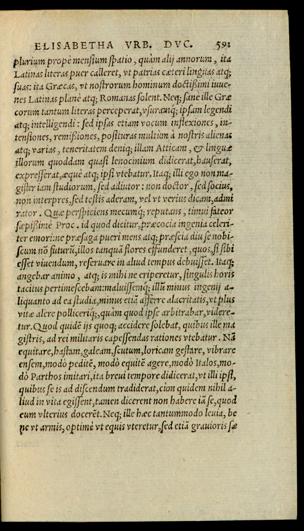 ELISABETHA VRB. DVC. 591
plurium propè mensium spatio, quàm alij annorum, ita
Latinas literas puer calleret, vt patrias cæteri linguas atq;
suas: ita Græcas, vt nostrorum hominum doctißimi iuue-
nes Latinas planè atq; Romanas solent. Neq; sanè ille Græ
corum tantum literas perceperat, vsurauq; ipsam legendi
atq; intelligendi: sed ipsas etiam vocum inflexiones, in-
tensiones, remißiones, posituras multùm à nostris alienas
atq; varias, teneritatem deniq; illam Atticam, & linguæ
illorum quoddam quasi lenocinium didicerat, hauserat,
expresserat, æquè atq; ipsi vtebatur. Itaq; illi ego non ma-
gister iam studiorum, sed adiutor: non doctor, sed socius,
non interpres, sed testis aderam, vel vt verius dicam, admi
rator. Quæ perspiciens mecumq; reputans, timui fateor
sæpißimè Proc. id quod dicitur, præcocia ingenia celeri-
ter emori: ne præsaga pueri mens atq; præscia diu se nobis-
cum nõ futurũ, illos tanquã flores effunderet, quos, si sibi
esset viuendum, reseruare in aliud tempus debuisset. Itaq;
angebar animo, atq; is mihi ne eriperetur, singulis horis
tacitus pertimescebam: maluissemq; illũ minus ingenij a-
liquanto ad ea studia, minus etiã afferre alacritatis, vt plus
vitæ alere polliceriq;, quàm quod ipse arbitrabar, videre-
tur. Quod quidẽ ijs quoq; accidere solebat, quibus ille ma
gistris, ad rei militaris capessendas rationes vtebatur. Nã
equitare, hastam, galeam, scutum, loricam gestare, vibrare
ensem, modò peditẽ, modò equitẽ agere, modò Italos, mo-
dò Parthos imitari, ita breui tempore didicerat, vt illi ipsi,
quibus se is ad discendum tradiderat, cùm quidem nihil a-
liud in vita egissent, tamen dicerent non habere iã se, quod
eum vlterius docerẽt. Neq; ille hæc tantummodo leuia, be
ne vt armis, optimè vt equis vteretur, sed etiã grauioris sæ